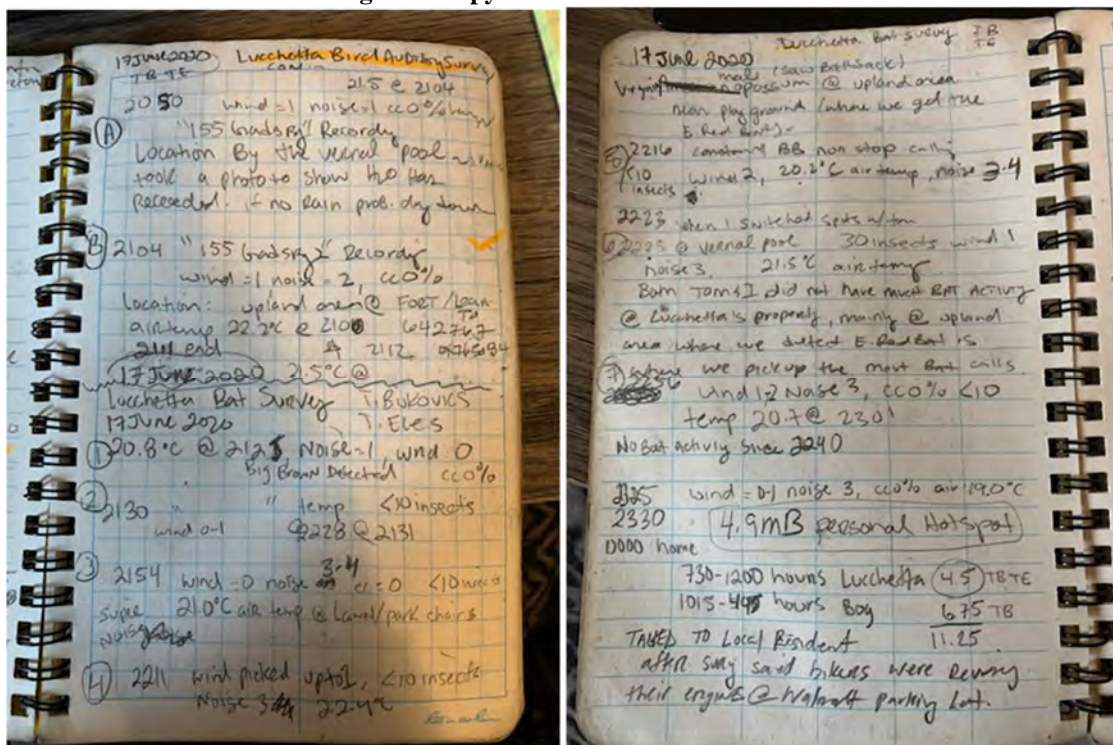 17 June 2020 Lucchetta Bird Auditory Survey
TB TE
21.5 @ 2104
2050 wind=1 noise=1 cc0%
A "155 Recording
Location By the vernal pool
took a photo to show H2O Has
Receeded. if no Rain prob. dry down
B 2104 "155 Recording
wind=1 noise=2, cc0%
Location: upland area @ FORT /
air temp 22.2°C @ 2100 642767
2111 end 2112
17 JUNE 2020 2.5°C @
Lucchetta Bat Survey T. BUKOVICS
17 JUNE 2020 T. Eles
1 20.8°C @ 2125 Noise=1, wnd 0
Big Brown Detected cc0%
2 2130 " " temp <10 insects
wind 0-1 @ 2131
3 2154 wind=0 noise 3-4 cc=0 <10 insects
super 21.0°C air temp @ Lawn/park chairs
Noisy
4 2211 wind picked up to 1, <10 insects
Noise 3 22.4°C
Lucchetta Bat Survey TB
TE
17 June 2020
male (saw Ball Sack)
opossum @ upland area
near play ground (where we get the
E. Red Bat).
5 2216 constant BB non stop calling
<10 insects wind 2, 20.2°C air temp, noise 3-4
2223 when I switched spots w/ tom
6 2225 @ vernal pool 30 insects wind 1
noise 3, 21.5°C air temp
Both Tom & I did not have much BAT ACTIVITY
@ Lucchetta's property, mainly @ upland
area where we detect E. Red Bat is
7 where we pick up the most Bat calls.
2256 wind 1-2 Noise 3, cc0% <10
temp 20.7 @ 2301
No Bat Activity since 2240
2325 wind = 0-1 noise 3, cc0% air 19.0°C
2330 4.9mB personal Hotspot
0000 home
730-1200 hours Lucchetta 4.5 TB TE
1015-445 hours Bog 6.75 TB
11.25
TALKED TO Local Resident
after survey said bikers were Revving
their engines @ Walmart parking Lot.